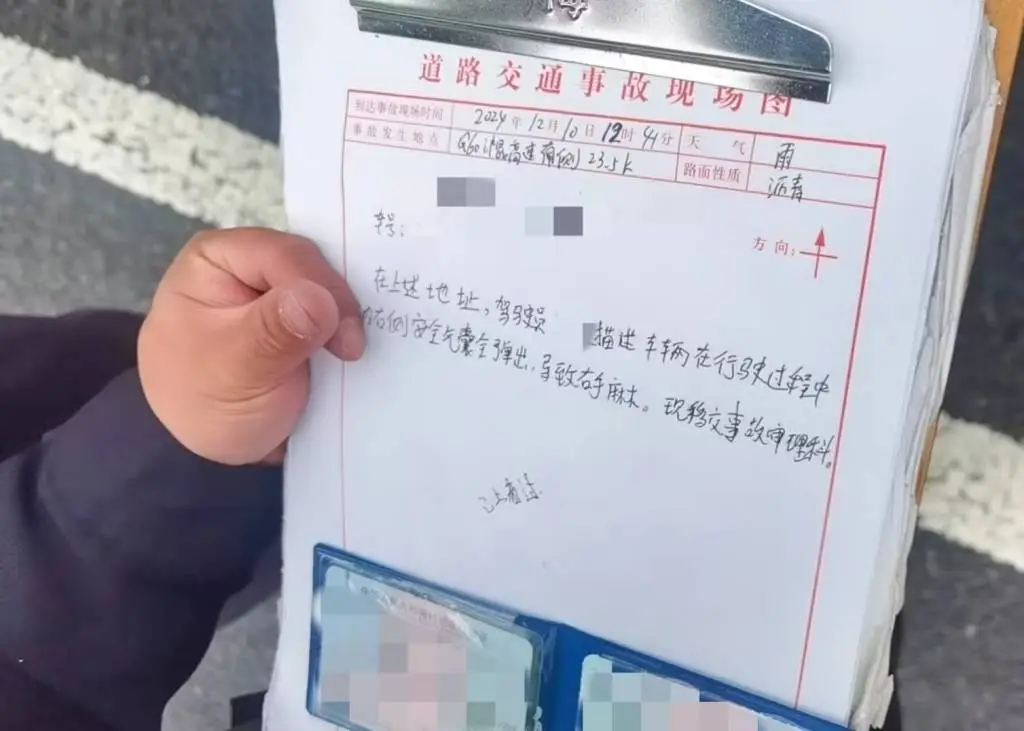 道路交通事故现场图
到达事故现场时间 2024年12月10日12时41分 天气 雨
事故发生地点 G60沪昆高速 23.5k 路面性质 沥青
车号:
方向:
在上述地址,驾驶员 描述车辆在行驶过程中
右侧安全气囊全弹出,导致右手麻木。现移交事故审理科。